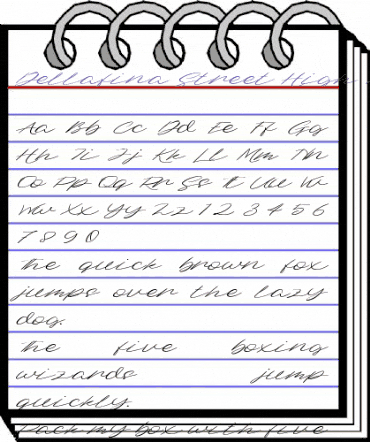 Dellafina Street High
Aa Bb Cc Dd Ee Ff Gg
Hh Ii Jj Kk Ll Mm Nn
Oo Pp Qq Rr Ss Tt Uu Vv
Ww Xx Yy Zz 1 2 3 4 5 6
7 8 9 0
The quick brown fox
jumps over the lazy
dog.
The five boxing
wizards jump
quickly.
Pack my box with five